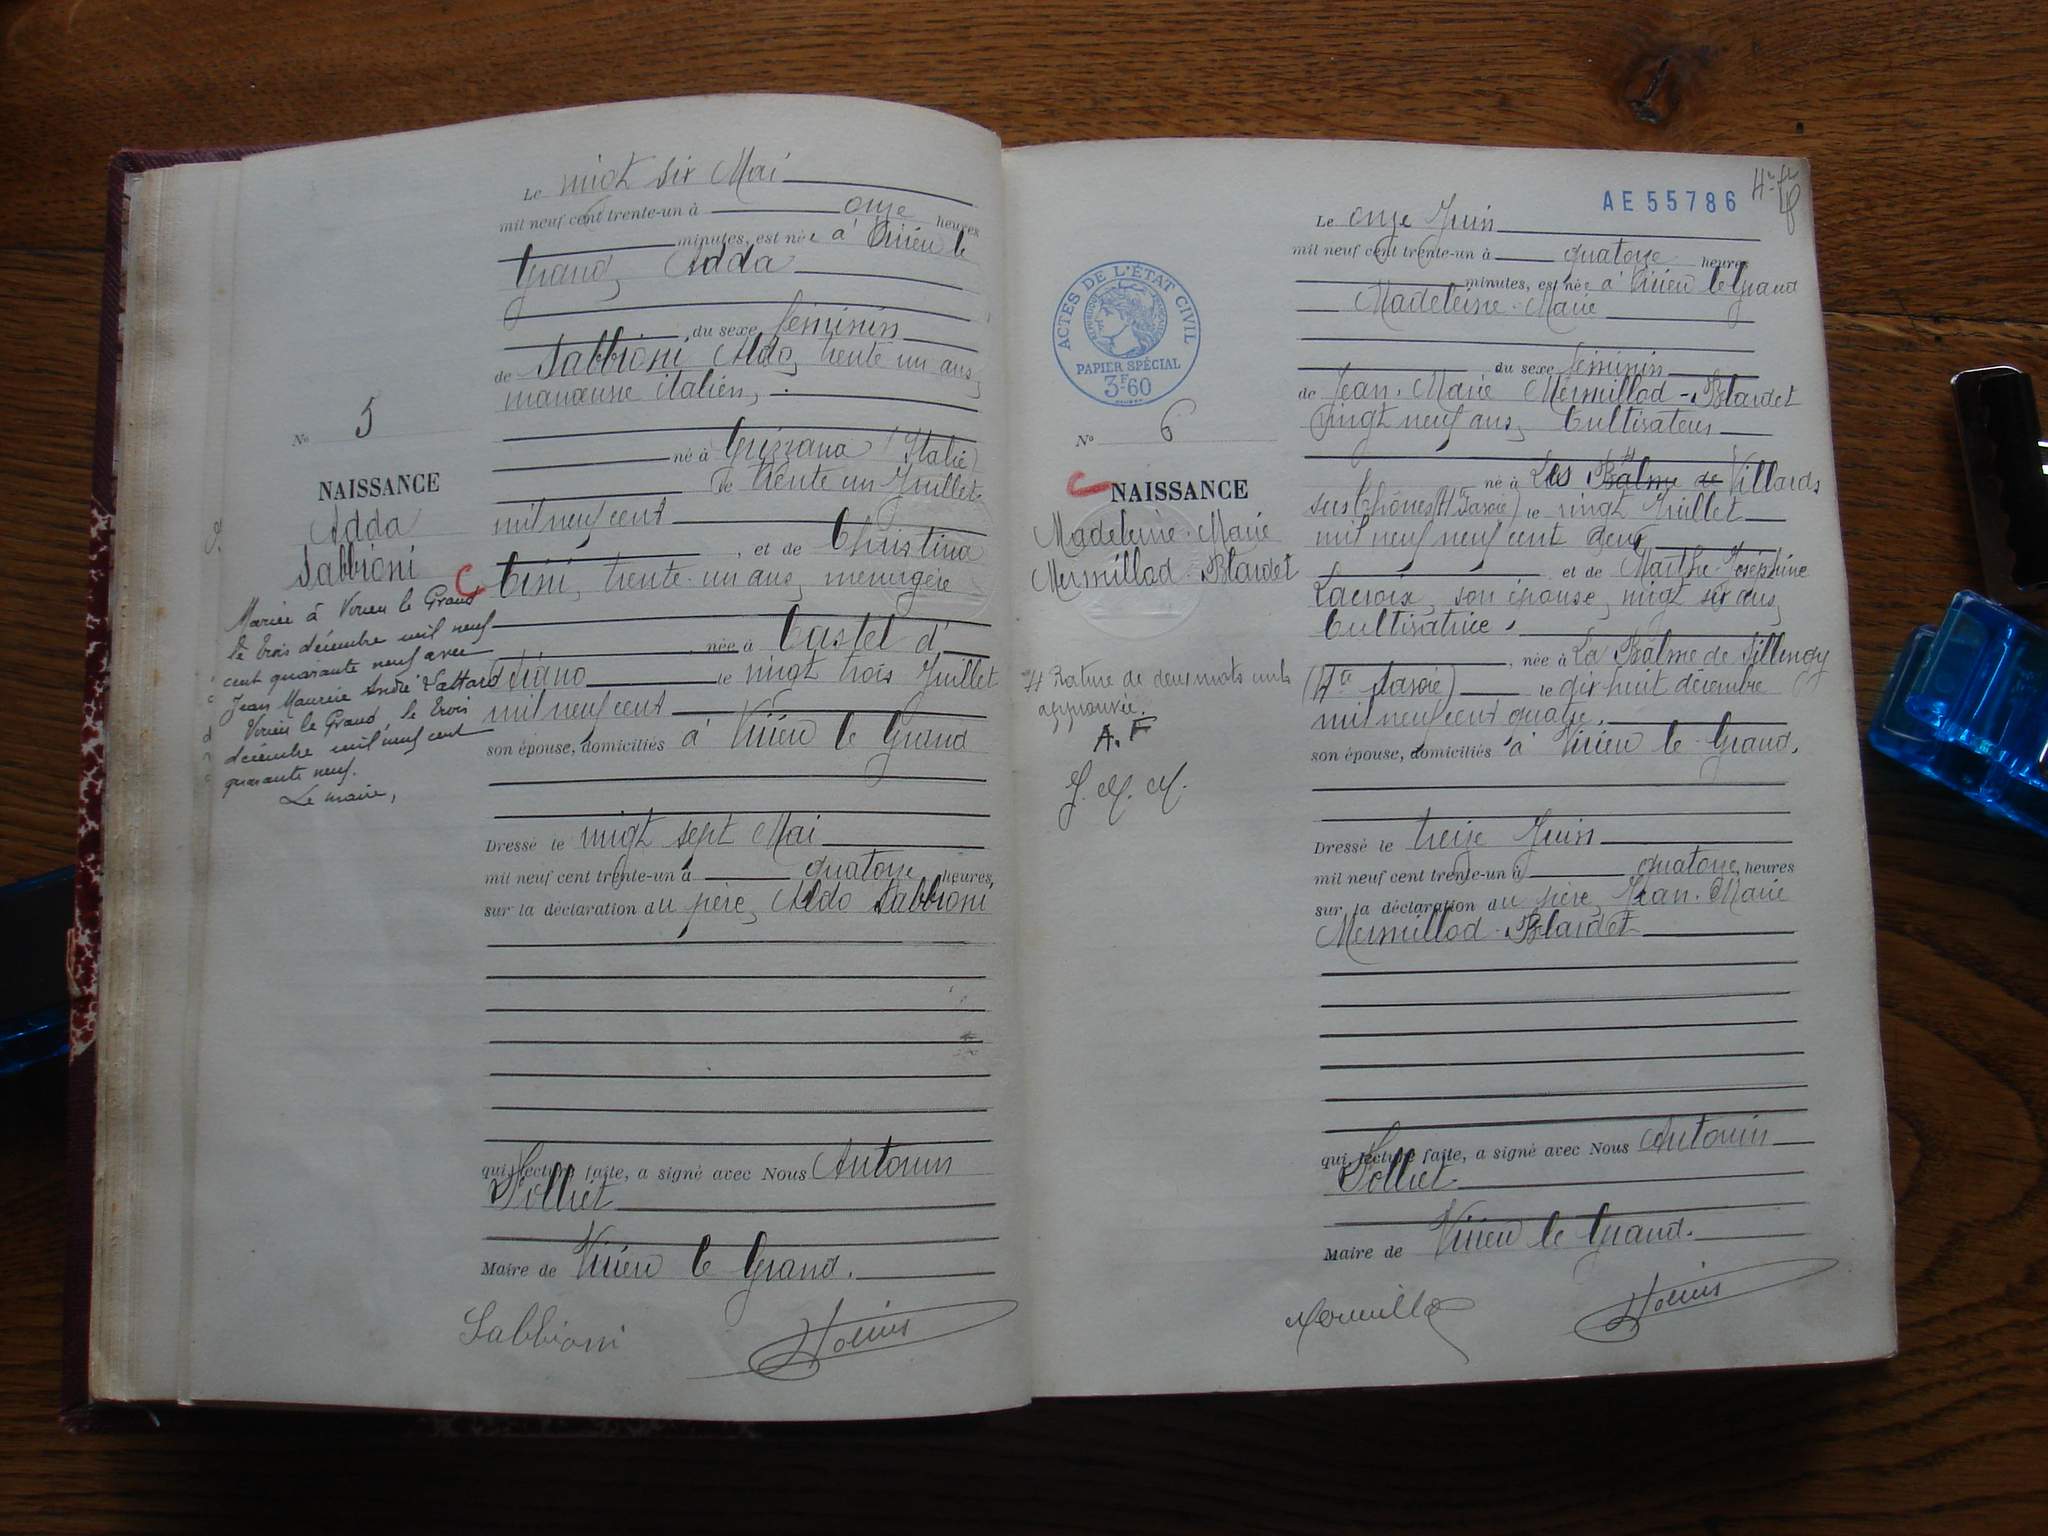 Le vingt six Mai
mil neuf cent trente-un à onze heures
minutes, est née à Virieu le
Grand, Adda
du sexe féminin
de Sabbioni Aldo, trente un ans,
manœuvre italien,
né à Grizzana (Italie)
le trente un Juillet
mil neuf cent
, et de Christina
Cini, trente-un ans, ménagère
née à Castel d'
le vingt trois Juillet
mil neuf cent
son épouse, domiciliés à Virieu le Grand
Dressé le vingt sept Mai
mil neuf cent trente-un à quatorze heures,
sur la déclaration du père, Aldo Sabbioni
qui, lecture faite, a signé avec Nous Antonin
Folliet
Maire de Virieu le Grand.
Sabbioni
N° 5
NAISSANCE
Adda
Sabbioni
C
Mariée à Virieu le Grand
le trois décembre mil neuf
cent quarante neuf avec
Jean Maurice André
Virieu le Grand, le trois
décembre mil neuf cent
quarante neuf.
Le maire,
AE 55786
ACTES DE L'ÉTAT CIVIL
RÉPUBLIQUE FRANÇAISE
PAPIER SPÉCIAL
3F60
N° 6
C
NAISSANCE
Madeleine-Marie
Mermillod-Blardet
H Rature de deux mots nuls
approuvée.
A. F
J. M. M.
Le onze Juin
mil neuf cent trente-un à quatorze heures
minutes, est née à Virieu le Grand
Madeleine-Marie
du sexe féminin
de Jean-Marie Mermillod-Blardet
vingt neuf ans, Cultivateur
né à Les Balme de Villards
sur Thônes (Hte Savoie) le vingt Juillet
mil neuf neuf cent deux
et de Marthe-Joséphine
Lacroix, son épouse, vingt six ans,
Cultivatrice,
, née à La Balme de Sillingy
(Hte Savoie) le dix huit décembre
mil neuf cent quatre.
son épouse, domiciliés à Virieu le Grand.
Dressé le treize Juin
mil neuf cent trente-un à quatorze heures
sur la déclaration du père, Jean-Marie
Mermillod-Blardet
qui, lecture faite, a signé avec Nous Antonin
Folliet
Maire de Virieu le Grand.